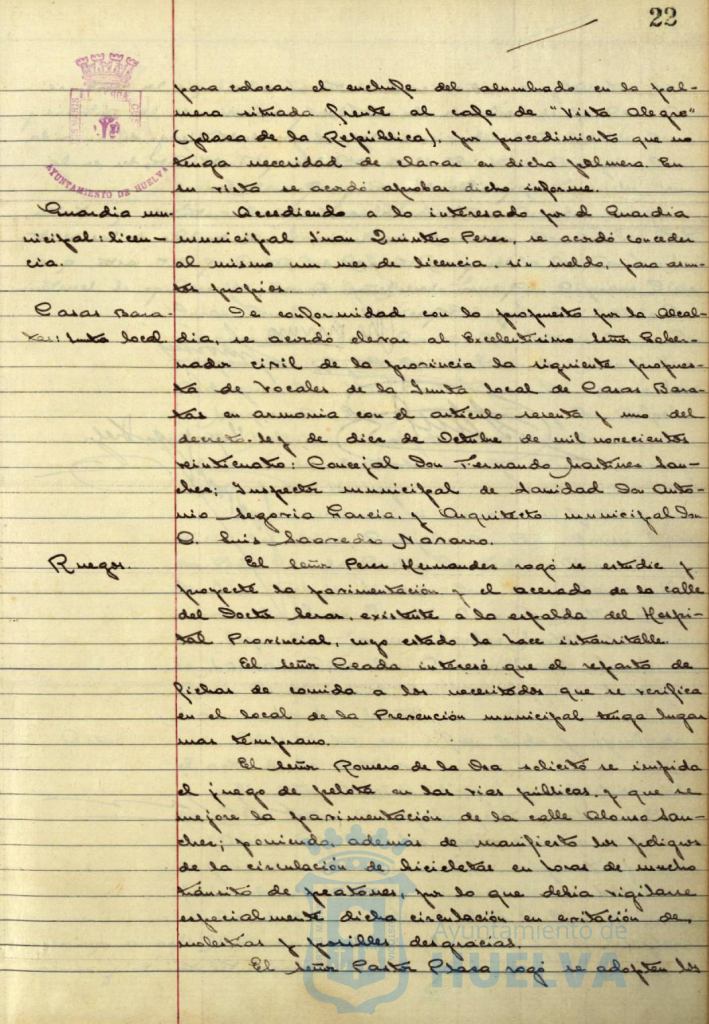 22
para colocar el enchufe del alumbrado en la pal-
mera situada frente al café de "Vista Alegre"
(plaza de la República), por procedimiento que no
tenga necesidad de clavar en dicha palmera. En
su vista se acordó aprobar dicho informe.
AYUNTAMIENTO DE HUELVA
Guardia mu-
nicipal: licen-
cia.
Accediendo a lo interesado por el Guardia
municipal Juan Quintero Perez, se acordó conceder
al mismo un mes de licencia, sin sueldo, para asun-
tos propios.
Casas Bara-
tas: Junta local.
De conformidad con lo propuesto por la Alcal-
día, se acordó elevar al Excelentísimo Señor Gober-
nador civil de la provincia la siguiente propues-
ta de Vocales de la Junta local de Casas Bara-
tas en armonia con el artículo sesenta y uno del
decreto-ley de diez de Octubre de mil novecientos
veinticuatro: Concejal Don Fernando Martinez San-
chez; Inspector municipal de Sanidad Don Anto-
nio Segovia Garcia, y Arquitecto municipal Don
Luis Saavedra Navarro.
Ruegos.
El Señor Perez Hernandez rogó se estudie y
proyecte la pavimentación y el acerado de la calle
del Doctor Seras, existente a la espalda del Hospi-
tal Provincial, cuyo estado la hace intransitable.
El Señor Ceada interesó que el reparto de
fichas de comida a los necesitados que se verifica
en el local de la Prevención municipal tenga lugar
mas temprano.
El Señor Romero de la Osa solicitó se impida
el juego de pelota en las vias públicas, y que se
mejore la pavimentación de la calle Alonso San-
chez; poniendo, además de manifiesto los peligros
de la circulación de bicicletas en horas de mucho
tránsito de peatones, por lo que debía vigilarse
especialmente dicha circulación en evitación de
molestias y posibles desgracias.
El Señor Pastor Plasa rogó se adopten los
Ayuntamiento de
HUELVA